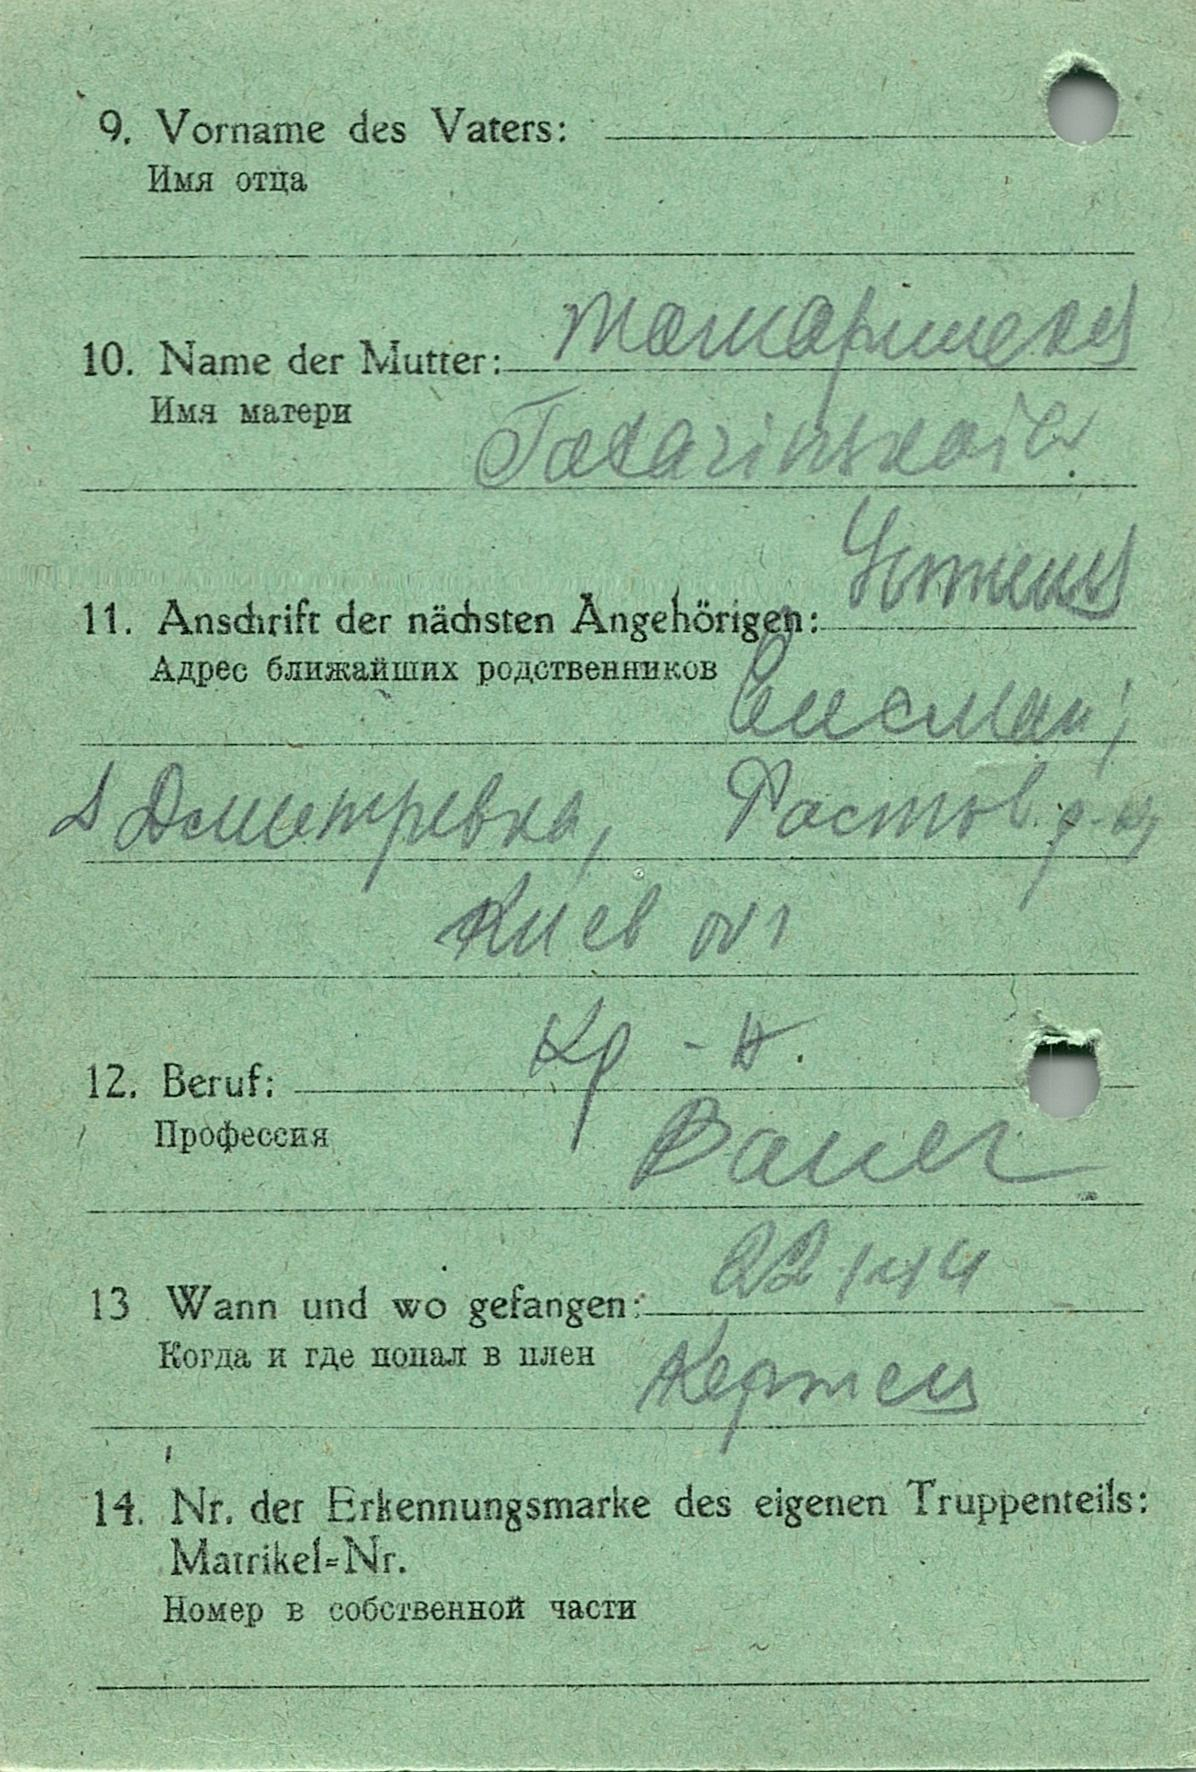 9. Vorname des Vaters:
Имя отца
10. Name der Mutter:
Имя матери
Tatarinskaia
11. Anschrift der nächsten Angehörigen:
Адрес ближайших родственников
Ростов. р-н,
Киев
12. Beruf: Кр-н.
Профессия
Bauer
13 Wann und wo gefangen:
Когда и где попал в плен
14. Nr. der Erkennungsmarke des eigenen Truppenteils:
Matrikel-Nr.
Номер в собственной части